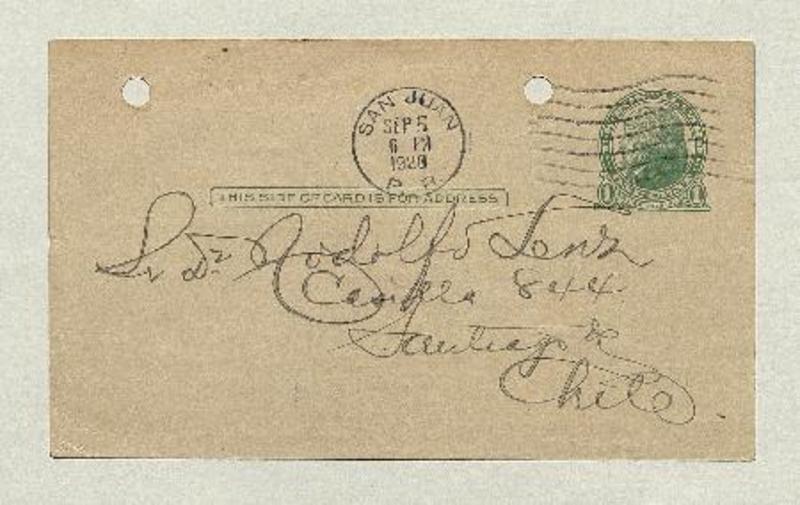 SAN JUAN
SEP 5
6 PM
1928
P. R.
THIS SIDE OF CARD IS FOR ADDRESS
Sr. Dr. Rodolfo Lenz
Casilla 844.
Santiago de
Chile.